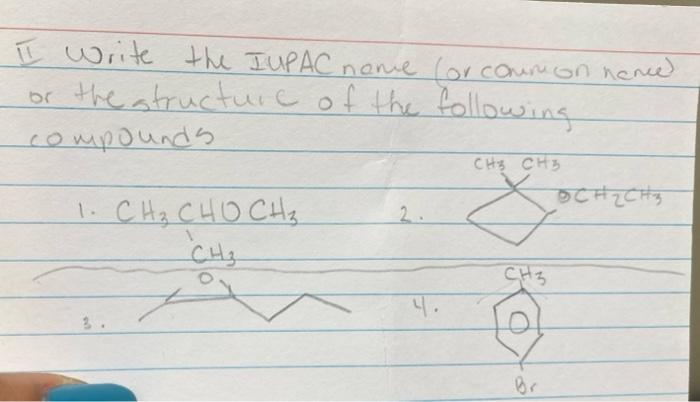 II Write the IUPAC name (or common name)
or the structure of the following
compounds
CH3 CH3
1. CH3 CHO CH3
2.
OCH2CH3
CH3
O
CH3
3.
4.
Br